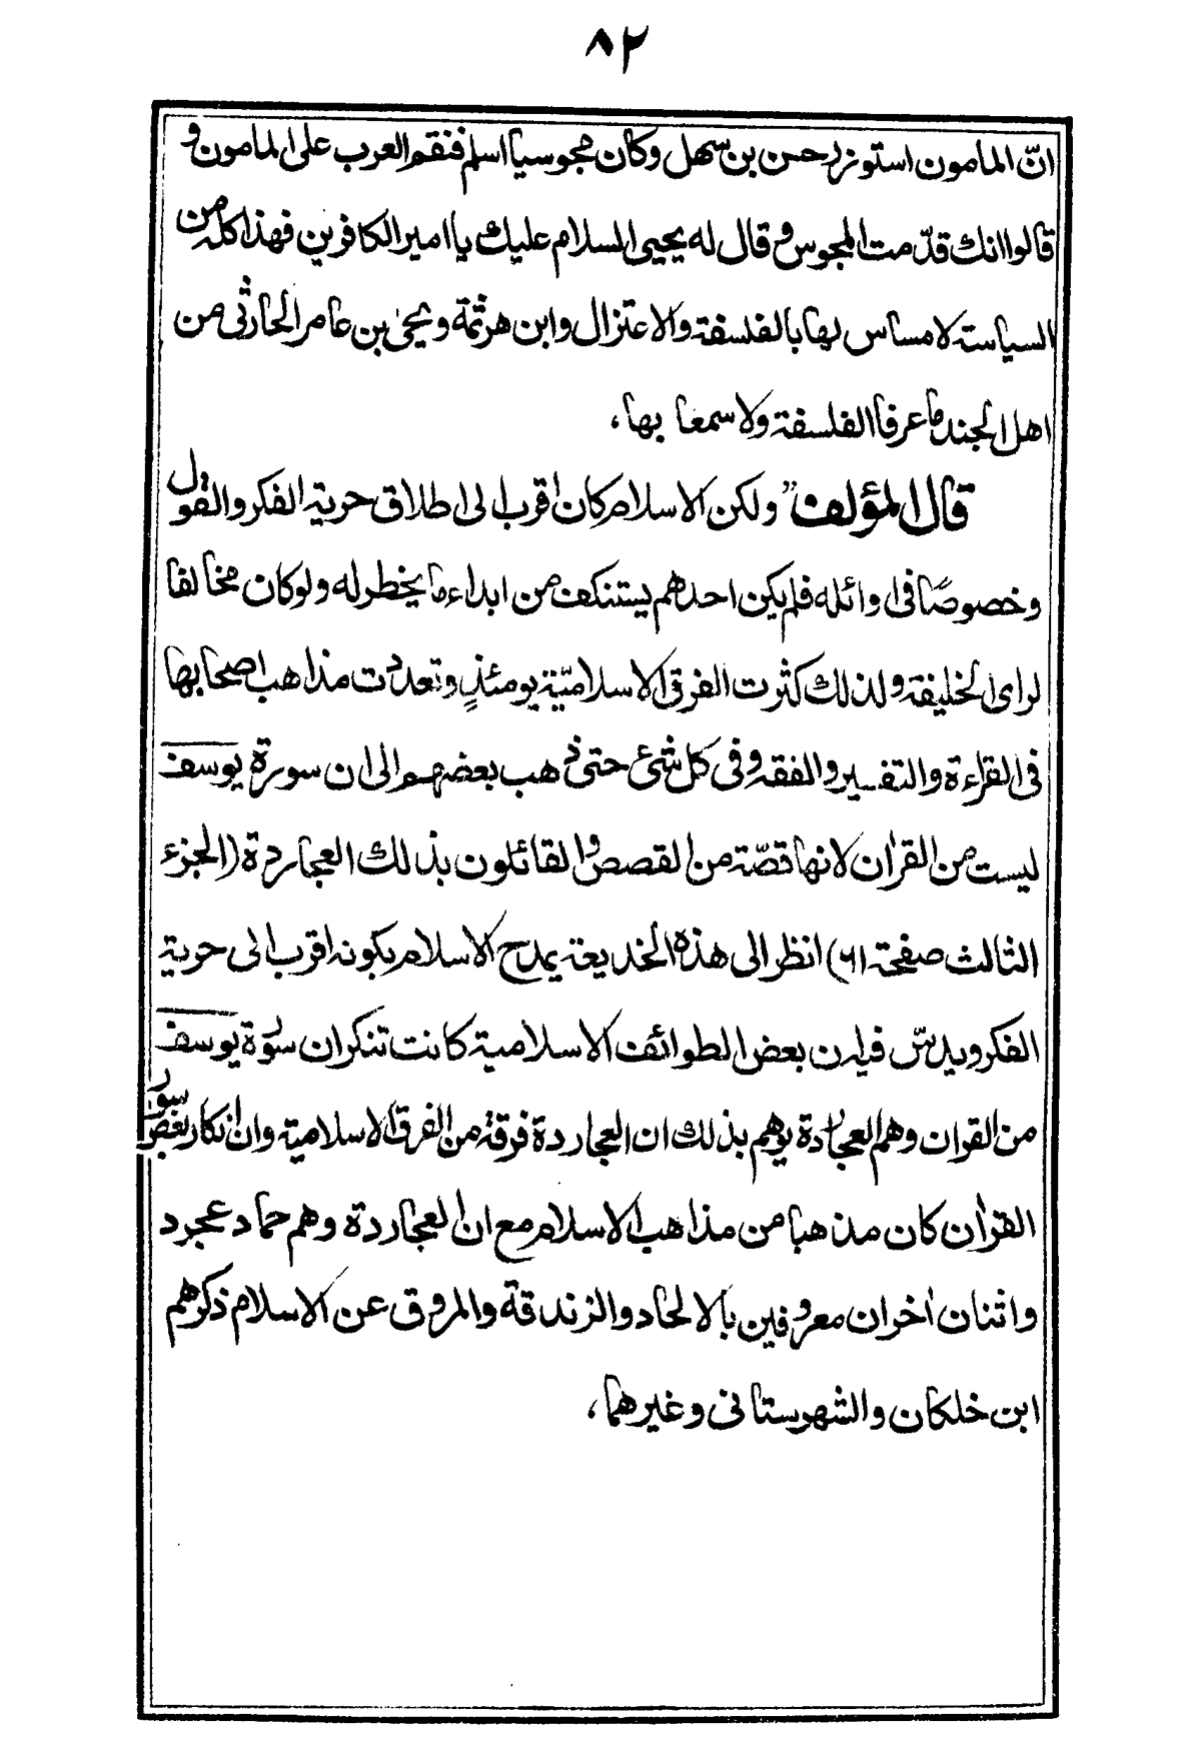 ٨٢
انّ المامون استوزر حسن بن سهل وكان مجوسيا اسلم فنقم العرب على المامون و
قالوا انك قدّمت المجوس و قال له يحيى السلام عليك يا امير الكافرين فهذا كله من
السياسة لا مساس لها بالفلسفة والاعتزال وابن هرثمة و يحيى بن عامر الحارثى من
اهل الجند ما عرفا الفلسفة ولا سمعا بها،
قال المؤلف ”ولكن الاسلام كان اقرب الى اطلاق حرية الفكر والقول
وخصوصًا فى اوائله فلم يكن احدهم يستنكف من ابداء ما يخطر له ولو كان مخالفا
لراى الخليفة ولذلك كثرت الفرق الاسلاميّة يومئذٍ وتعددت مذاهب اصحابها
فى القراءة والتفسير والفقه وفى كل شئ حتى ذهب بعضهم الى ان سورة يوسف
ليست من القران لانها قصّة من القصص والقائلون بذلك العجاردة (الجزء
الثالث صفحة ٦١) انظر الى هذه الخديعة يمدح الاسلام بكونه اقرب الى حرية
الفكر ويدسّ فيه ان بعض الطوائف الاسلامية كانت تنكر ان سورة يوسف
من القران وهم العجاردة يوهم بذلك ان العجاردة فرقة من الفرق الاسلامية وان انكار بعض سور
القران كان مذهبا من مذاهب الاسلام مع ان العجاردة وهم حماد عجرد
واثنان اخران معروفين بالالحاد والزندقة والمروق عن الاسلام ذكرهم
ابن خلكان والشهرستانى وغيرهما،